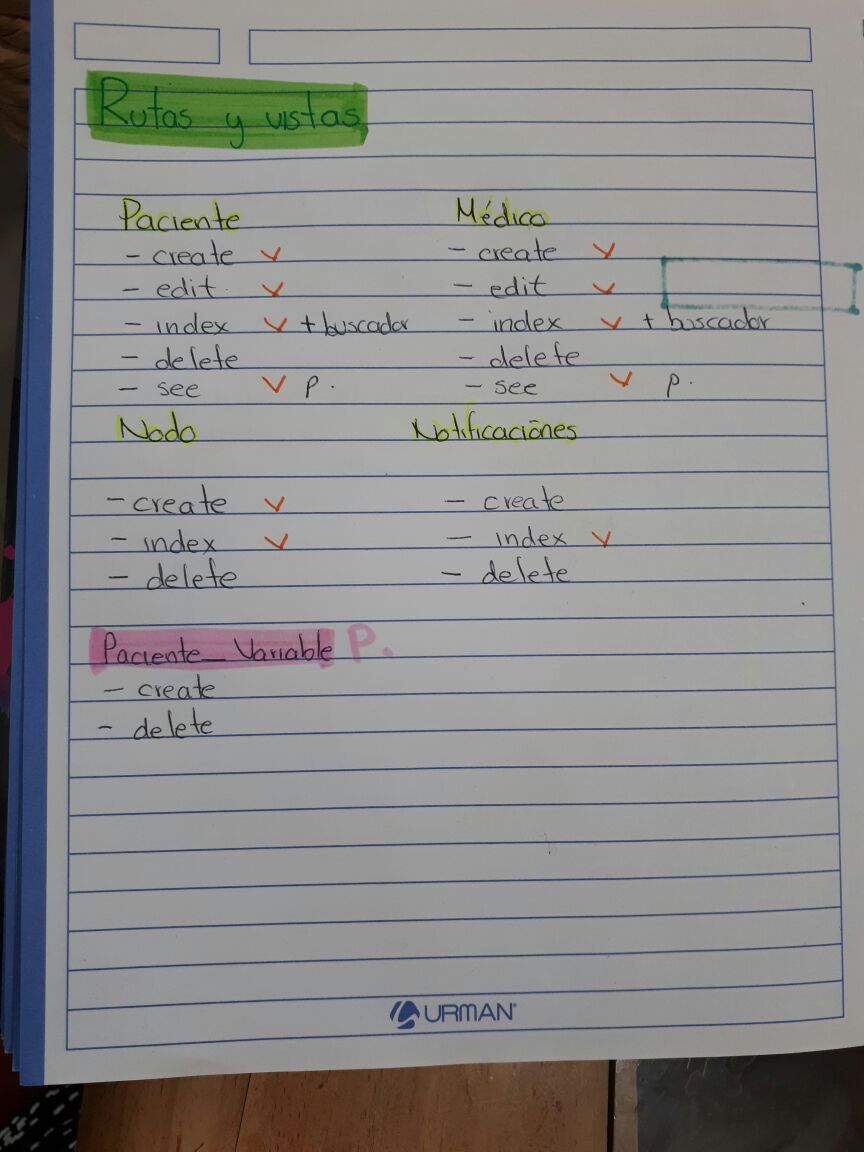 Rutas y vistas
Paciente
- create ✓
- edit ✓
- index ✓ + buscador
- delete
- see ✓ p.
Médico
- create ✓
- edit ✓
- index ✓ + buscador
- delete
- see ✓ p.
Nodo
- create ✓
- index ✓
- delete
Notificaciōnes
- create
- index ✓
- delete
Paciente_Variable P.
- create
- delete
URMAN